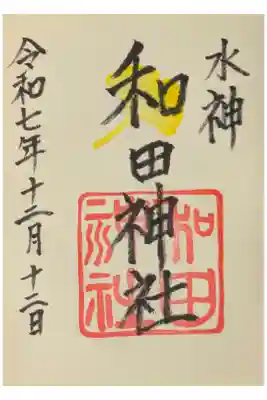 水神
和田神社
和田神社
令和七年十二月十二日